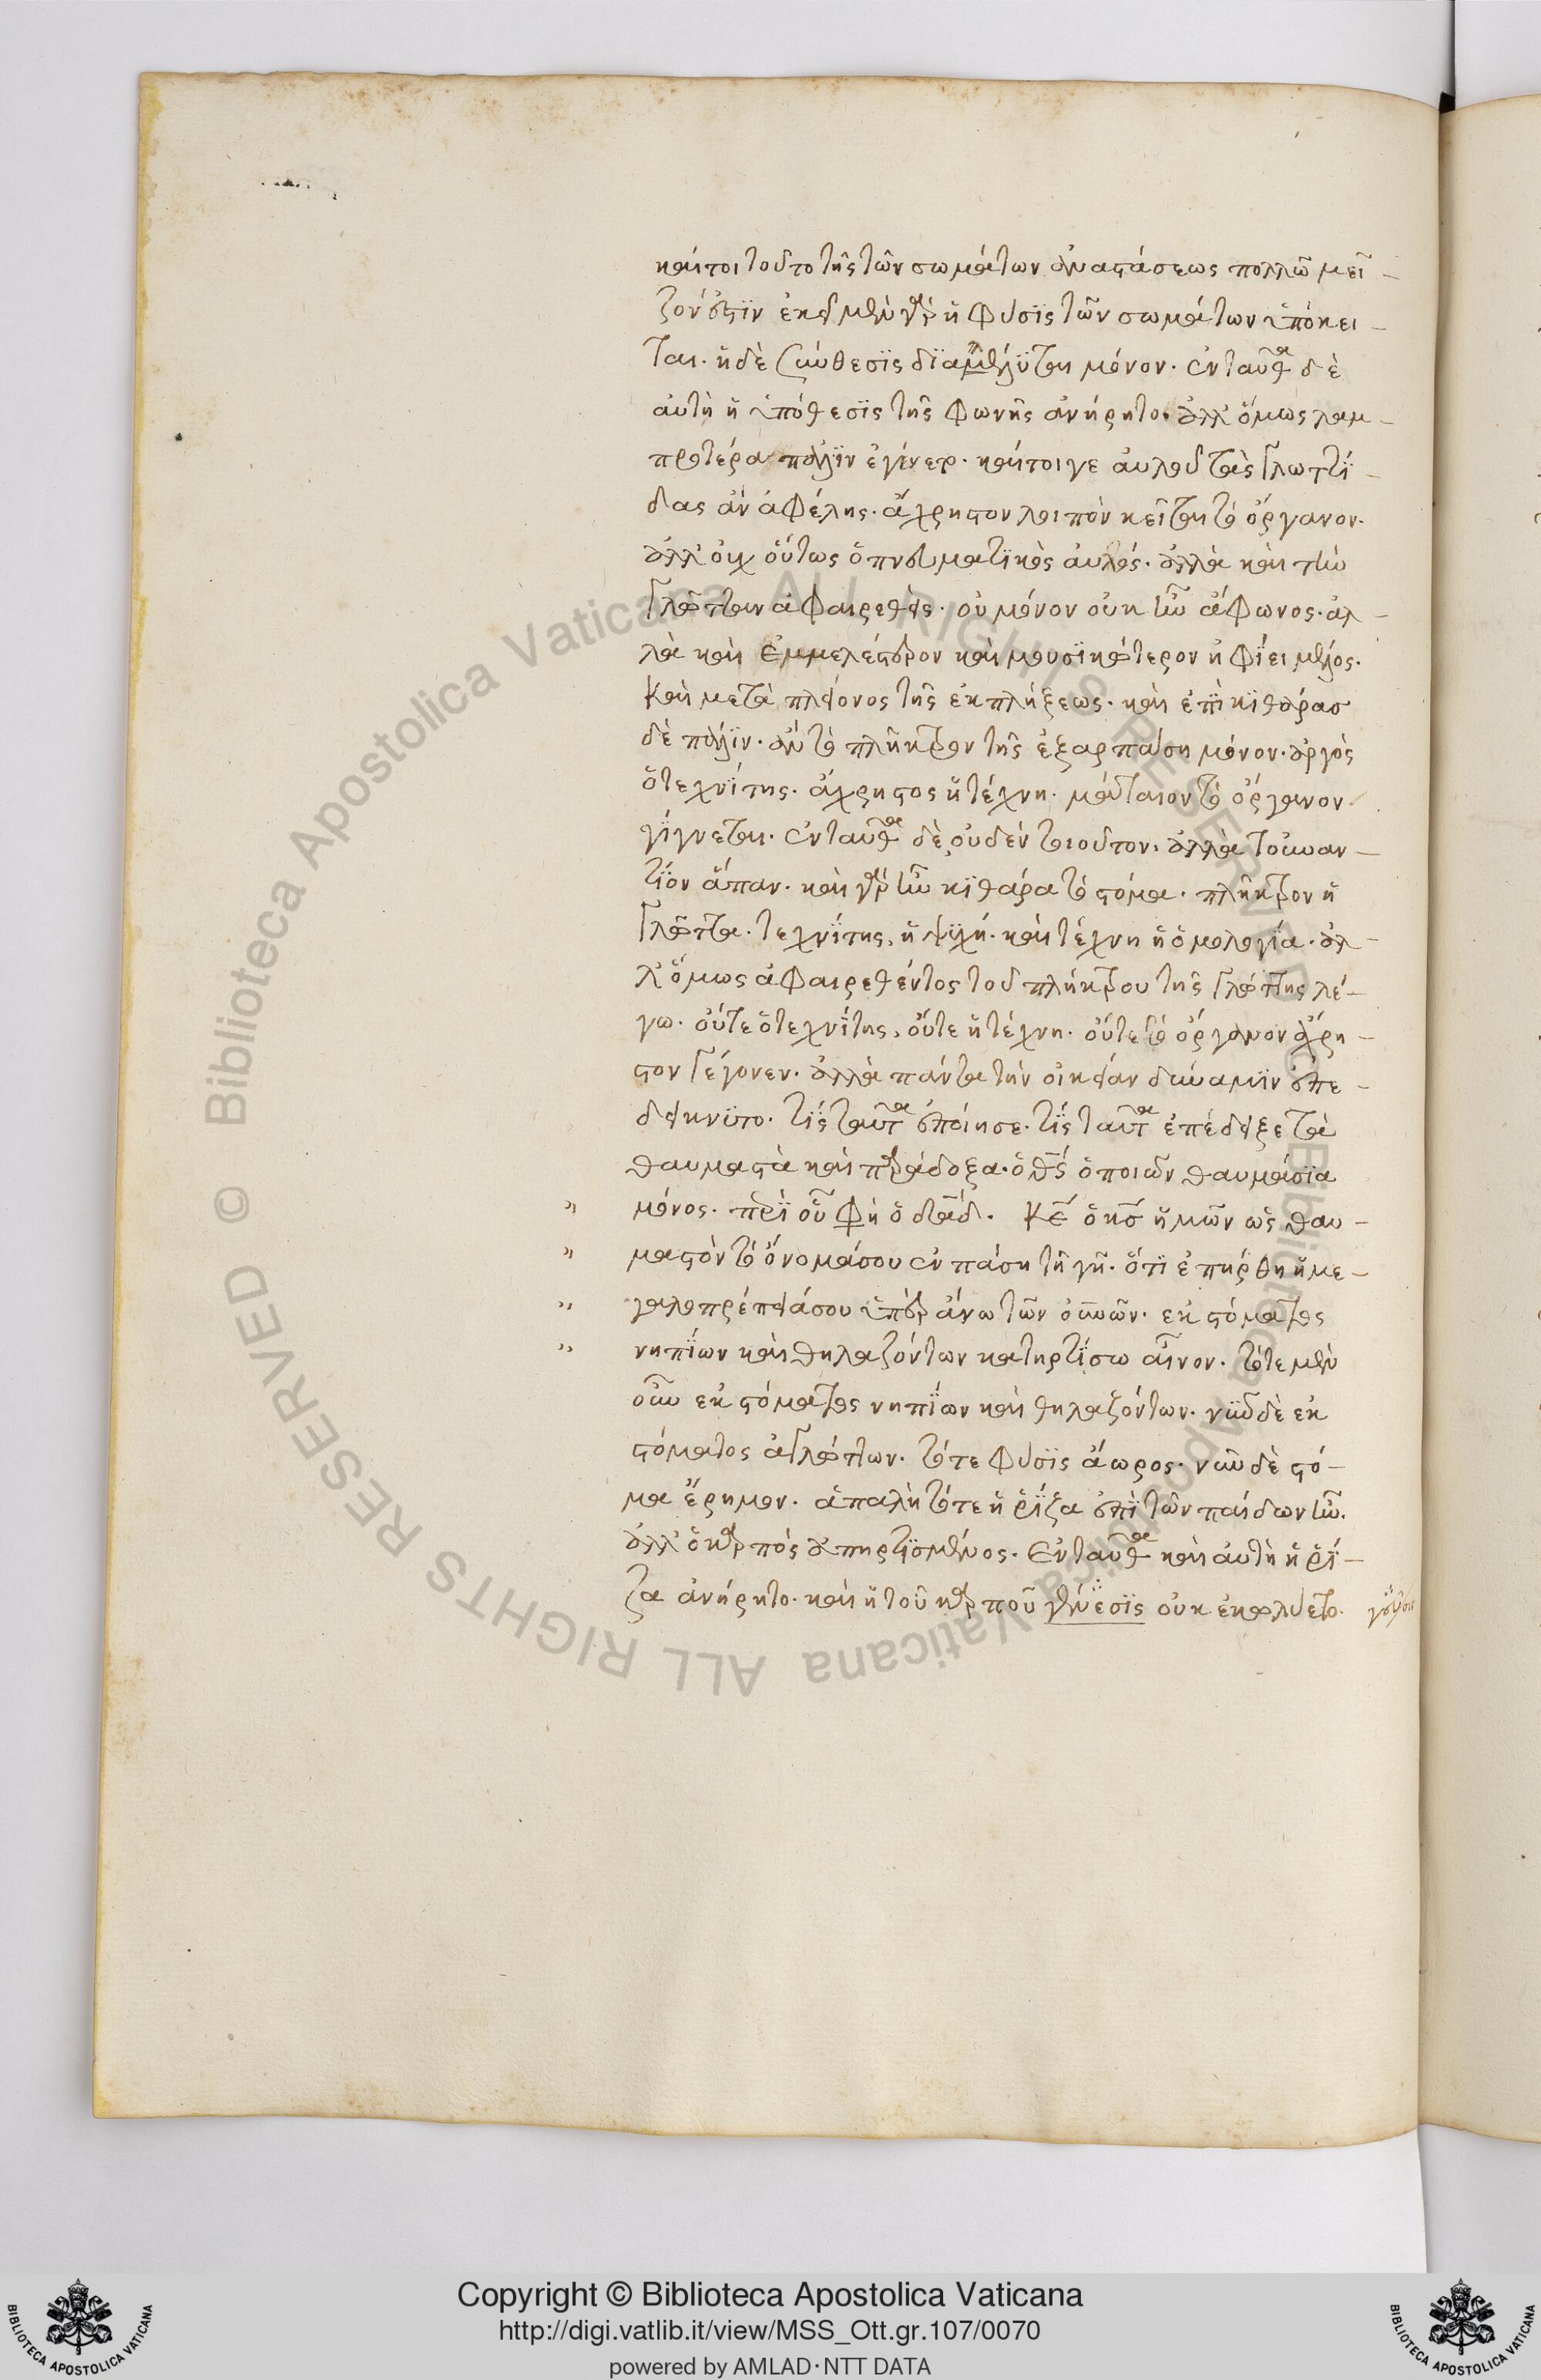 καίτοι τοῦτο τῆς τῶν σωμάτων ἀναστάσεως πολλῶ μεῖ-
ζόν ἐστϊν ἐκεῖ μὲν γὰρ ἡ φύσϊς τῶν σωμάτων ὑπόκει-
ται. ἡ δὲ σύνθεσϊς δϊαλύεται μόνον. ἐνταῦθα δὲ
αὐτὴ ἡ ὑπόθεσϊς τῆς φωνῆς ἀνήρητο. ἀλλ' ὅμως λαμ-
προτέρα πάλϊν ἐγίνετο. καίτοιγε αὐλοῦ τὰς γλωττϊ-
δας ἂν ἀφέλης. ἄχρηστον λοιπὸν κεῖται τὸ ὄργανον.
ἀλλ' οὐχ οὕτως ὁ πνευματϊκὸς αὐλός. ἀλλὰ καὶ τὴν
γλῶτταν ἀφαιρεθεὶς. οὐ μόνον οὐκ ἦν ἄφωνος. ἀλ-
λὰ καὶ ἐμμελέστερον καὶ μουσϊκώτερον ἠφΐει μέλος.
Καὶ μετὰ πλείονος τῆς ἐκπλήξεως. καὶ ἐπϊ κϊθάρασ
δὲ πάλϊν. ἂν τὸ πλῆκτρον τῆς ἐξαρπάση μόνον. ἀργὸς
ὁ τεχνΐτης. ἄχρηστος ἡ τέχνη. μάταιον τὸ ὄργανον
γΐγνεται. ἐνταῦθα δὲ οὐδὲν τοιοῦτον. ἀλλὰ τοὐναν-
τΐον ἅπαν. καὶ γὰρ ἦν κϊθάρα τὸ στόμα. πλῆκτρον ἡ
γλῶττα. τεχνΐτης, ἡ ψυχή. καὶ τέχνη ἡ ὁμολογΐα. ἀλ-
λ' ὅμως ἀφαιρεθέντος τοῦ πλήκτρου τῆς γλώττης λέ-
γω. οὔτε ὁ τεχνΐτης, οὔτε ἡ τέχνη. οὔτε τὸ ὄργανον ἄχρη-
στον γέγονεν. ἀλλὰ πάντα τὴν οἰκείαν δύναμϊν ἐπε-
δείκνϋτο. τΐς ταῦτα ἐποίησε. τΐς ταῦτα ἐπέδειξε τὰ
θαυμαστὰ καὶ παράδοξα. ὁ θς ὁ ποιῶν θαυμάσϊα
" μόνος. περῒ οὗ φη ὁ δᾶδ. Κε ὁ κσ ἡμῶν ὡς θαυ-
" μαστὸν τὸ ὄνομάσου ἐν πάση τῆ γῆ. ὅτϊ ἐπήρθη ἡ με-
" γαλοπρέπειάσου ὑπὲρ ἄνω τῶν οὐνῶν. ἐκ στόματος
" νηπΐων καὶ θηλαζόντων κατηρτΐσω αἶνον. τότε μὲν
οὖν ἐκ στόματος νηπΐων καὶ θηλαζόντων. νῦν δὲ ἐκ
στόματος ἀγλώττων. τότε φύσϊς ἄωρος. νῦν δὲ στό-
μα ἔρημον. ἁπαλὴ τότε ἡ ῥΐζα ἐπϊ τῶν παίδων ἦν.
ἀλλ' ὁ καρπός ἀπηρτϊσμένος. Ἐνταῦθα καὶ αὐτὴ ἡ ῥΐ-
ζα ἀνήρητο. καὶ ἡ τοῦ καρποῦ γένεσϊς οὐκ ἐκωλύετο.